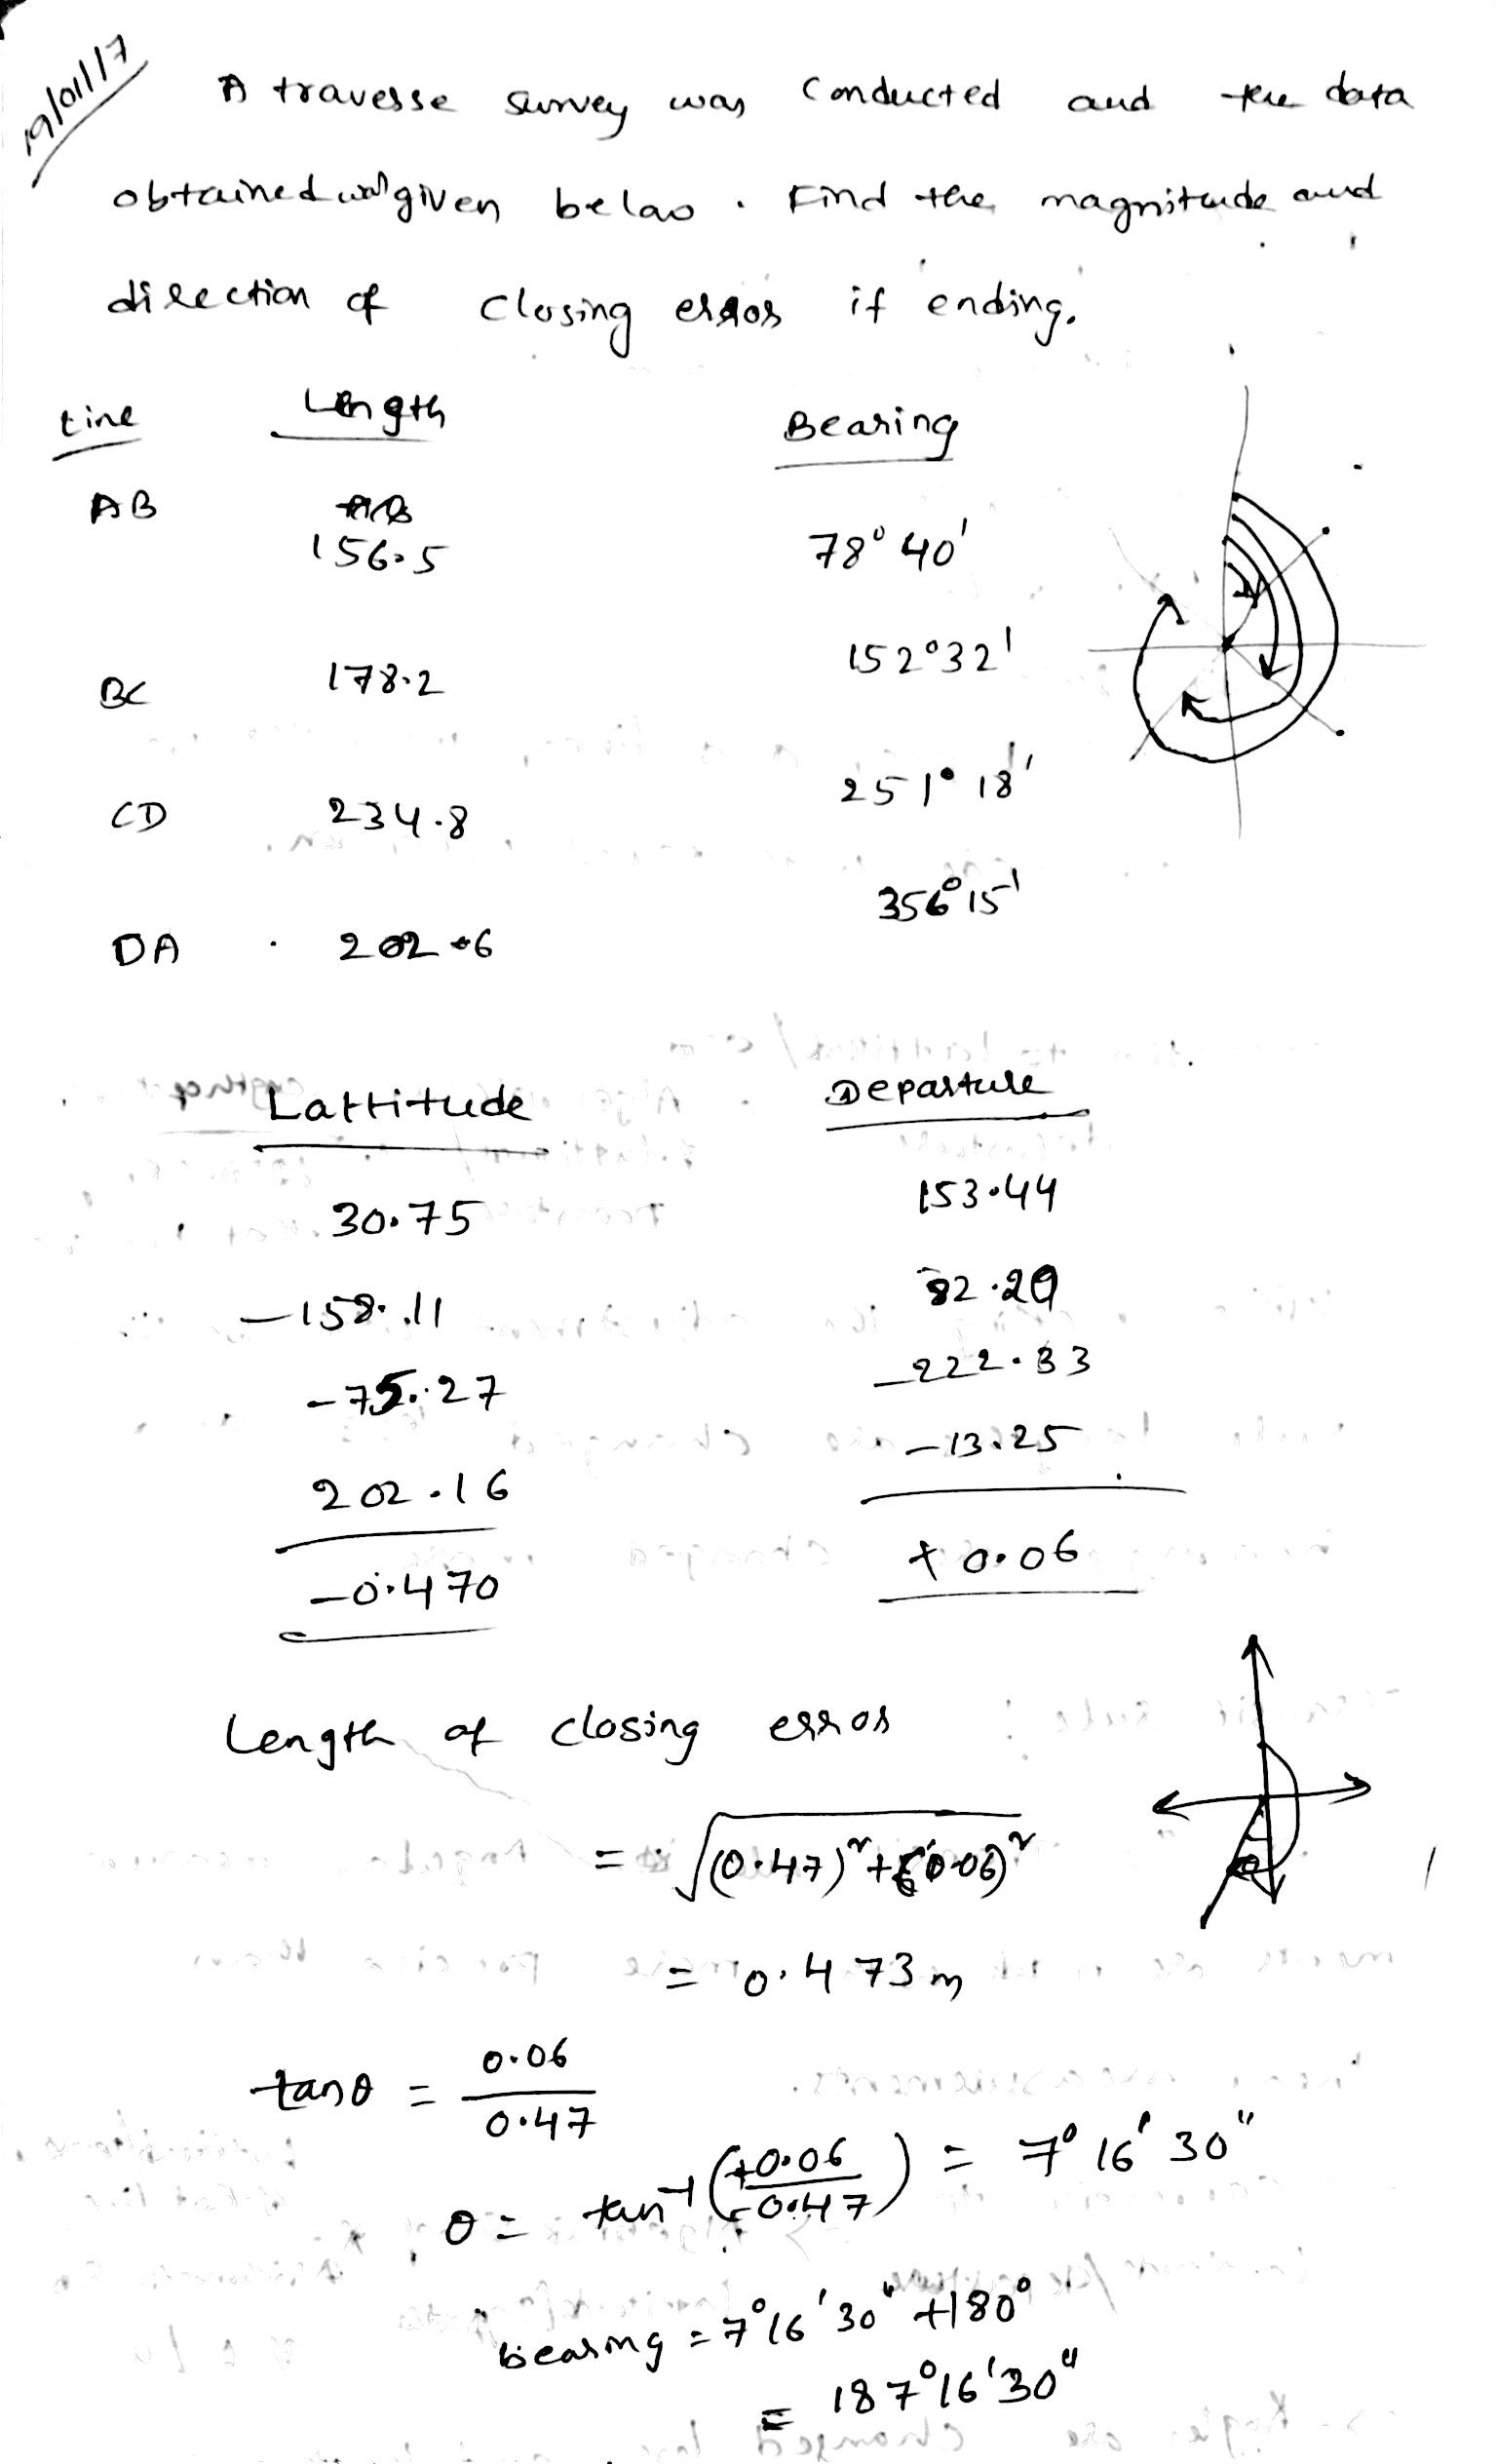 19/01/17
A travesse survey was conducted and the data
obtained was given belao. Find the magnitude and
direction of closing error if ending.
Line Length Bearing
AB 156.5 78°40'
BC 178.2 152°32'
CD 234.8 251°18'
DA 202.6 356°15'
Lattitude Departure
30.75 153.44
-158.11 82.20
-75.27 -222.33
202.16 -13.25
-0.470 +0.06
Length of closing error
= √(0.47)²+(0.06)²
= 0.473m
tanθ = 0.06/0.47
θ = tan⁻¹(+0.06/-0.47) = 7°16'30"
bearing = 7°16'30"+180°
= 187°16'30"